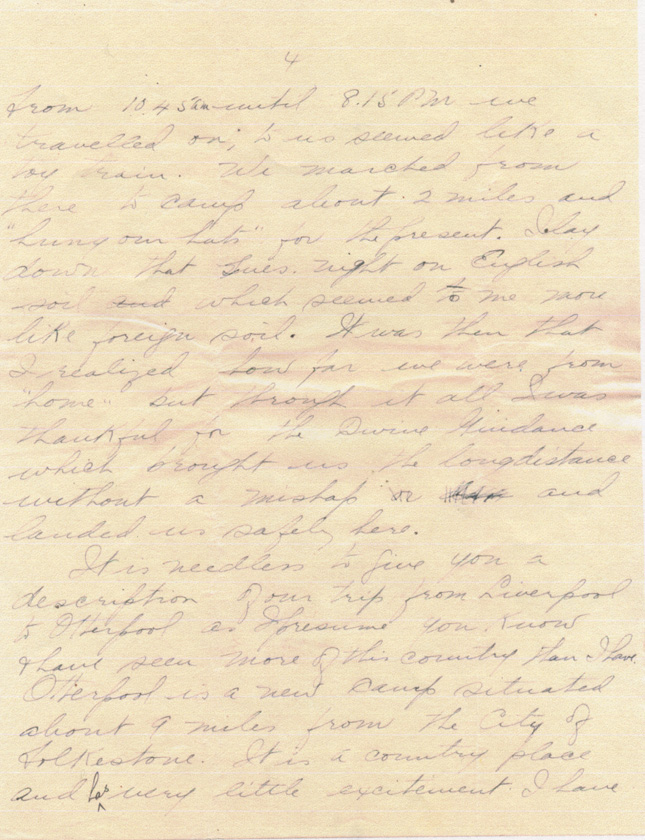 4
from 10.45am until 8.15 PM we
travelled on, to us seemed like a
toy train. We marched from
there to camp about 2 miles and
"hung our hats" for the present. I lay
down that Tues. night on English
soil and which seemed to me more
like foreign soil. It was then that
I realized how far we were from
"home" but through it all I was
thankful for the Divine Guidance
which brought us the long distance
without a mishap or and
landed us safely here.
It is needless to give you a
description of our trip from Liverpool
to Otterpool as I presume you know
& have seen more of this country than I have.
Otterpool is a new camp situated
about 9 miles from the City of
Folkestone. It is a country place
and has very little excitement. I have